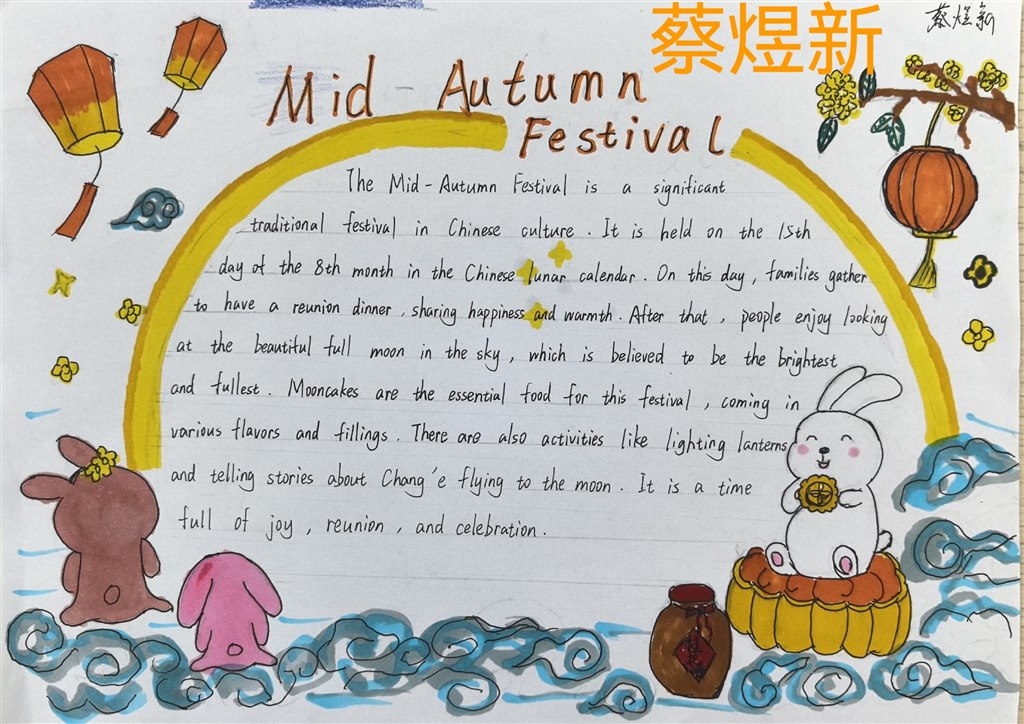 蔡煜新
蔡煜新
Mid-Autumn
Festival
The Mid-Autumn Festival is a significant
traditional festival in Chinese culture. It is held on the 15th
day of the 8th month in the Chinese lunar calendar. On this day, families gather
to have a reunion dinner, sharing happiness and warmth. After that, people enjoy looking
at the beautiful full moon in the sky, which is believed to be the brightest
and fullest. Mooncakes are the essential food for this festival, coming in
various flavors and fillings. There are also activities like lighting lanterns
and telling stories about Chang'e flying to the moon. It is a time
full of joy, reunion, and celebration.